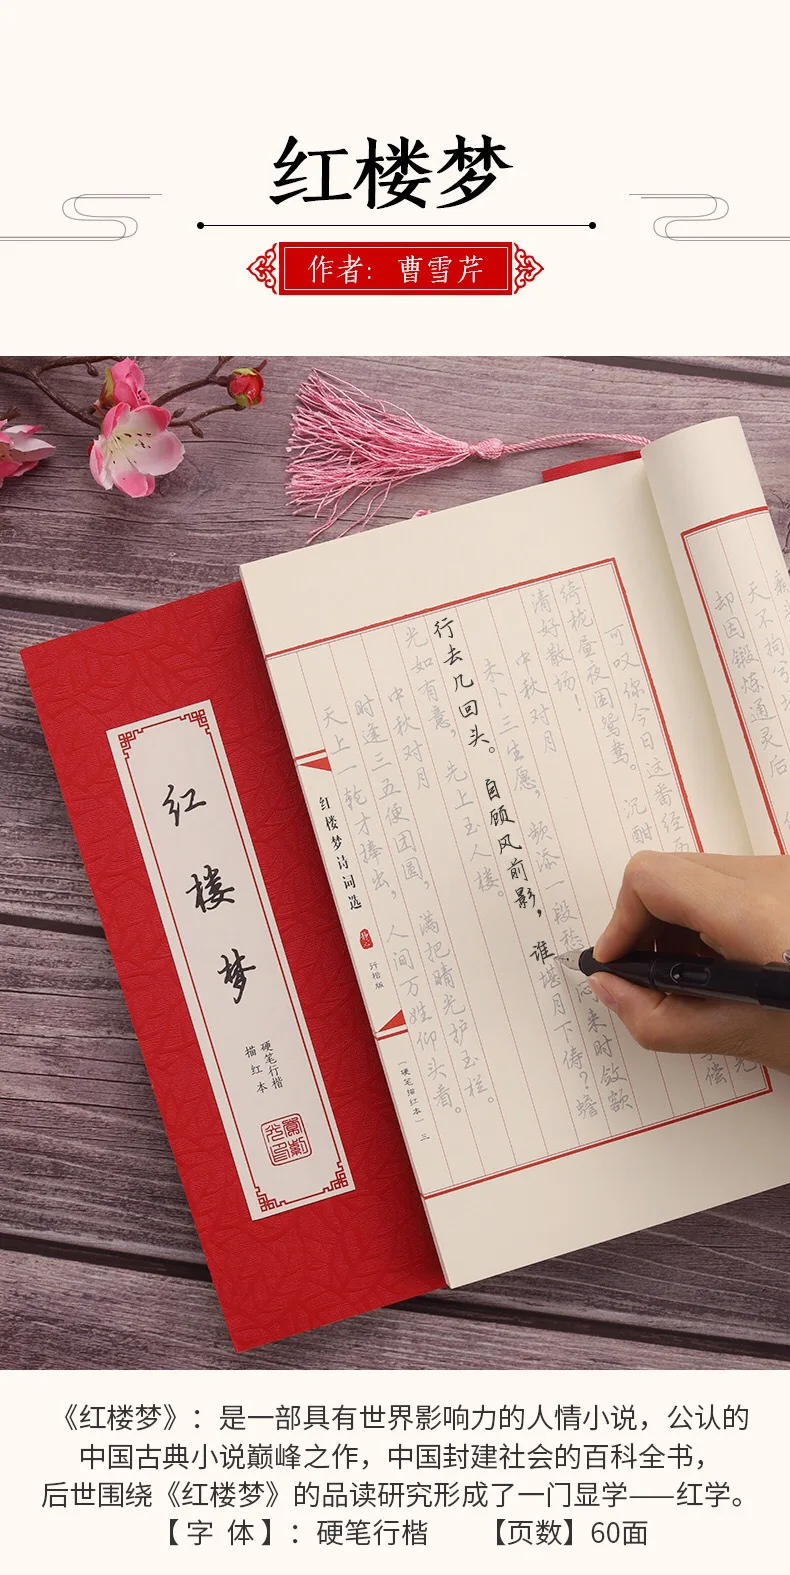 红楼梦
作者：曹雪芹
却因锻炼通灵后
可叹你今日这番经历
绮栊昼夜困鸳鸯。沉酣
清好散场！
中秋对月
未卜三生愿，频添一段愁
闷来时敛额
行去几回头。自顾风前影，谁
堪月下俦？蟾
光如有意，先上玉人楼。
中秋对月
时逢三五便团圆，满把晴光护玉栏。
天上一轮才捧出，人间万姓仰头看。
红楼梦诗词选
行楷版
（硬笔描红本）三
红楼梦
硬笔行楷
描红本
《红楼梦》：是一部具有世界影响力的人情小说，公认的
中国古典小说巅峰之作，中国封建社会的百科全书，
后世围绕《红楼梦》的品读研究形成了一门显学——红学。
【字 体】：硬笔行楷 【页数】60面